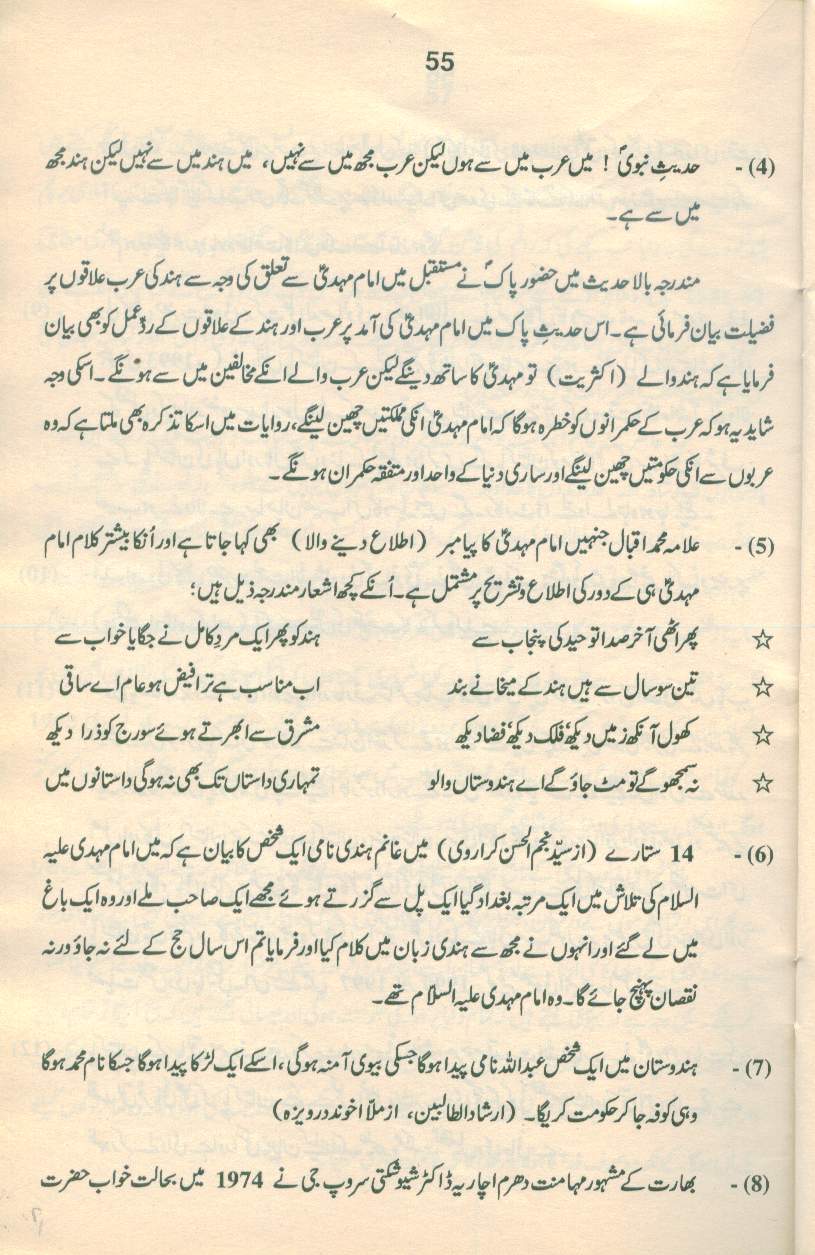 55
(4)- حدیثِ نبویؐ ! میں عرب میں سے ہوں لیکن عرب مجھ میں سے نہیں، میں ہند میں سے نہیں لیکن ہند مجھ
میں سے ہے۔
مندرجہ بالا حدیث میں حضور پاکؐ نے مستقبل میں امام مہدیؑ سے تعلق کی وجہ سے ہند کی عرب علاقوں پر
فضیلت بیان فرمائی ہے۔ اس حدیثِ پاک میں امام مہدیؑ کی آمد پر عرب اور ہند کے علاقوں کے ردِّ عمل کو بھی بیان
فرمایا ہے کہ ہند والے (اکثریت) تو مہدیؑ کا ساتھ دینگے لیکن عرب والے انکے مخالفین میں سے ہونگے۔ اسکی وجہ
شاید یہ ہو کہ عرب کے حکمرانوں کو خطرہ ہوگا کہ امام مہدیؑ انکی مملکتیں چھین لینگے، روایات میں اسکا تذکرہ بھی ملتا ہے کہ وہ
عربوں سے انکی حکومتیں چھین لینگے اور ساری دنیا کے واحد اور متفقہ حکمران ہونگے۔
(5)- علامہ محمد اقبال جنہیں امام مہدیؑ کا پیامبر (اطلاع دینے والا) بھی کہا جاتا ہے اور اُنکا بیشتر کلام امام
مہدیؑ ہی کے دور کی اطلاع و تشریح پر مشتمل ہے۔ اُنکے کچھ اشعار مندرجہ ذیل ہیں؛
☆ پھر اٹھی آخر صدا توحید کی پنجاب سے ہند کو پھر ایک مردِ کامل نے جگایا خواب سے
☆ تین سو سال سے ہیں ہند کے میخانے بند اب مناسب ہے ترا فیض ہو عام اے ساقی
☆ کھول آنکھ زمیں دیکھ، فلک دیکھ، فضا دیکھ مشرق سے ابھرتے ہوئے سورج کو ذرا دیکھ
☆ نہ سمجھو گے تو مٹ جاؤ گے اے ہندوستاں والو تمہاری داستاں تک بھی نہ ہوگی داستانوں میں
(6)- 14 ستارے (از سیّد نجم الحسن کراروی) میں غانم ہندی نامی ایک شخص کا بیان ہے کہ میں امام مہدی علیہ
السلام کی تلاش میں ایک مرتبہ بغداد گیا ایک پل سے گزرتے ہوئے مجھے ایک صاحب ملے اور وہ ایک باغ
میں لے گئے اور انہوں نے مجھ سے ہندی زبان میں کلام کیا اور فرمایا تم اس سال حج کے لئے نہ جاؤ ورنہ
نقصان پہنچ جائے گا۔ وہ امام مہدی علیہ السلام تھے۔
(7)- ہندوستان میں ایک شخص عبداللہ نامی پیدا ہوگا جسکی بیوی آمنہ ہوگی، اسکے ایک لڑکا پیدا ہوگا جسکا نام محمد ہوگا
وہی کوفہ جا کر حکومت کریگا۔ (ارشاد الطالبین، از ملّا اخوند درویزہ)
(8)- بھارت کے مشہور مہامنت دھرم اچاریہ ڈاکٹر شیو شکتی سروپ جی نے 1974 میں بحالت خواب حضرت